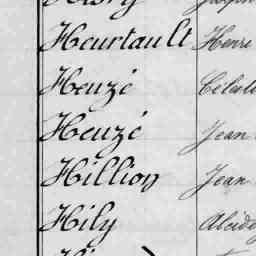 Heurtault Henri
Heuzé
Heuzé Jean
Hillion Jean
Hily Alcide